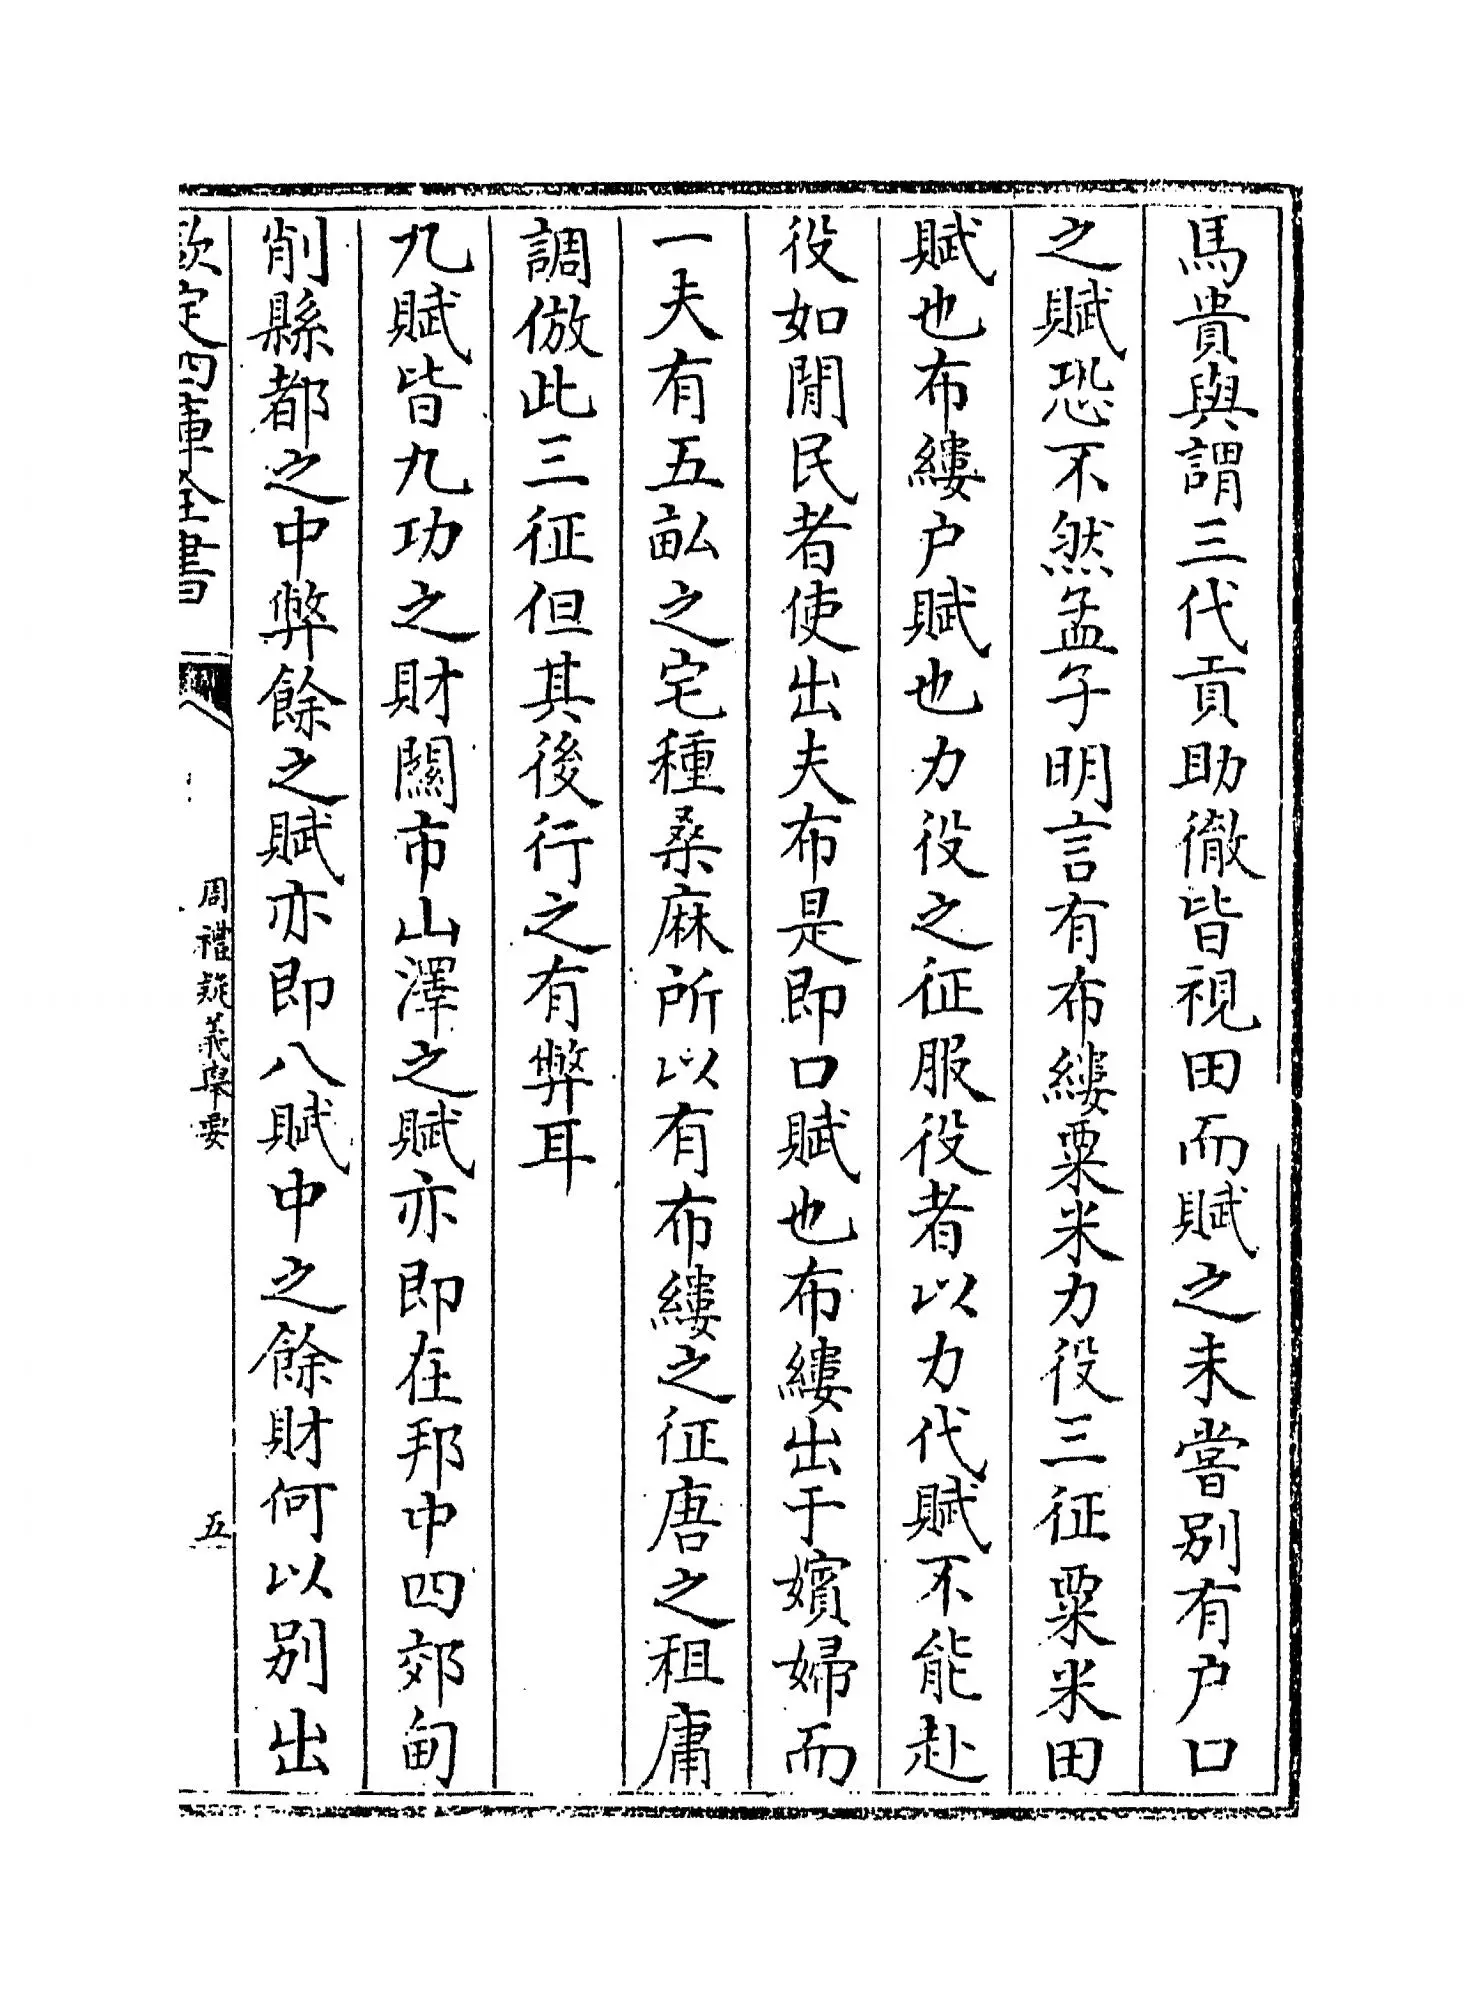 馬貴與謂三代貢助徹皆視田而賦之未嘗別有户口
之賦恐不然孟子明言有布縷粟米力役三征粟米田
賦也布縷户賦也力役之征服役者以力代賦不能赴
役如閒民者使出夫布是即口賦也布縷出于嬪婦而
一夫有五畝之宅種桑麻所以有布縷之征唐之租庸
調倣此三征但其後行之有弊耳
九賦皆九功之財關市山澤之賦亦即在邦中四郊甸
削縣都之中弊餘之賦亦即八賦中之餘財何以别出
欽定四庫全書
周禮疑義舉要
五